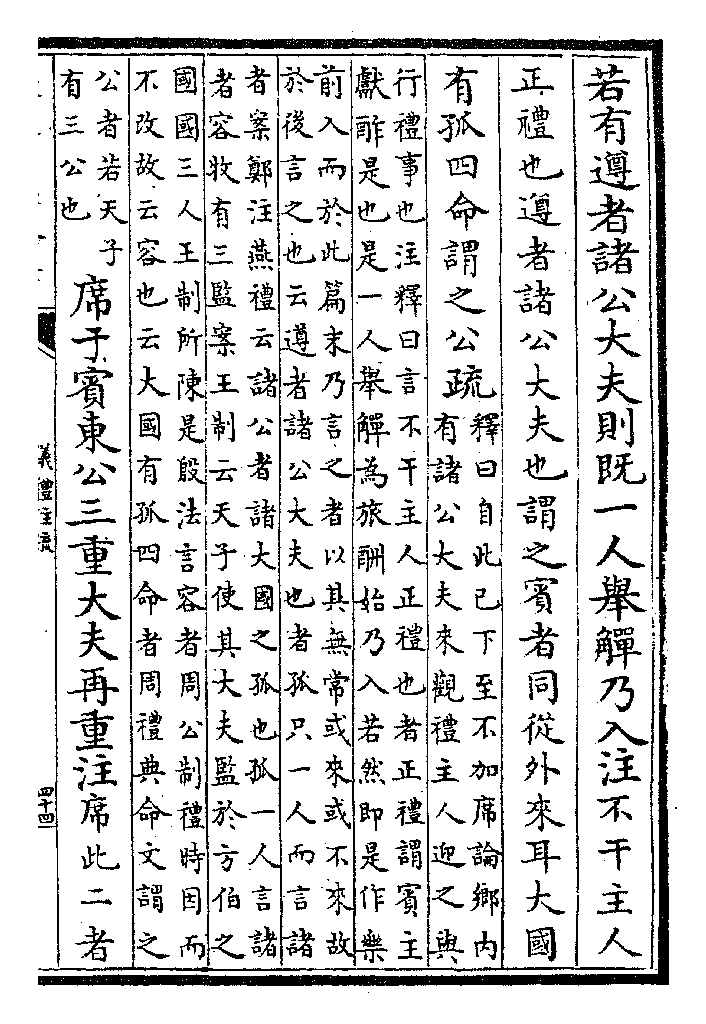 若有遵者諸公大夫則既一人舉觶乃入注不干主人
正禮也遵者諸公大夫也謂之賓者同從外來耳大國
有孤四命謂之公疏釋曰自此已下至不加席論鄉內
有諸公大夫來觀禮主人迎之與
行禮事也注釋曰言不干主人正禮也者正禮謂賓主
獻酢是也是一人舉觶為旅酬始乃入若然即是作樂
前入而於此篇末乃言之者以其無常或來或不來故
於後言之也云遵者諸公大夫也者孤只一人而言諸
者案鄭注燕禮云諸公者諸大國之孤也孤一人言諸
者容牧有三監案王制云天子使其大夫監於方伯之
國國三人王制所陳是殷法言容者周公制禮時因而
不改故云容也云大國有孤四命者周禮典命文謂之
公者若天子
有三公也
席于賓東公三重大夫再重注席此二者
儀禮注疏
四十四